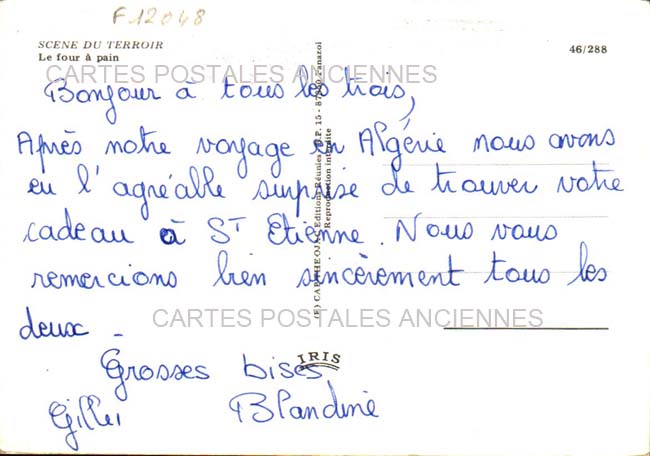 F12048
SCENE DU TERROIR
Le four à pain
46/288
CARTES POSTALES ANCIENNES
Bonjour à tous les trois,
Après notre voyage en Algérie nous avons
eu l'agréable surprise de trouver votre
cadeau à ST Etienne. Nous vous
remercions bien sincèrement tous les
deux.
CARTES POSTALES ANCIENNES
Grosses bises
Gilles Blandine
IRIS
Editions Réunies B.P. 15 - Panazol
Reproduction interdite